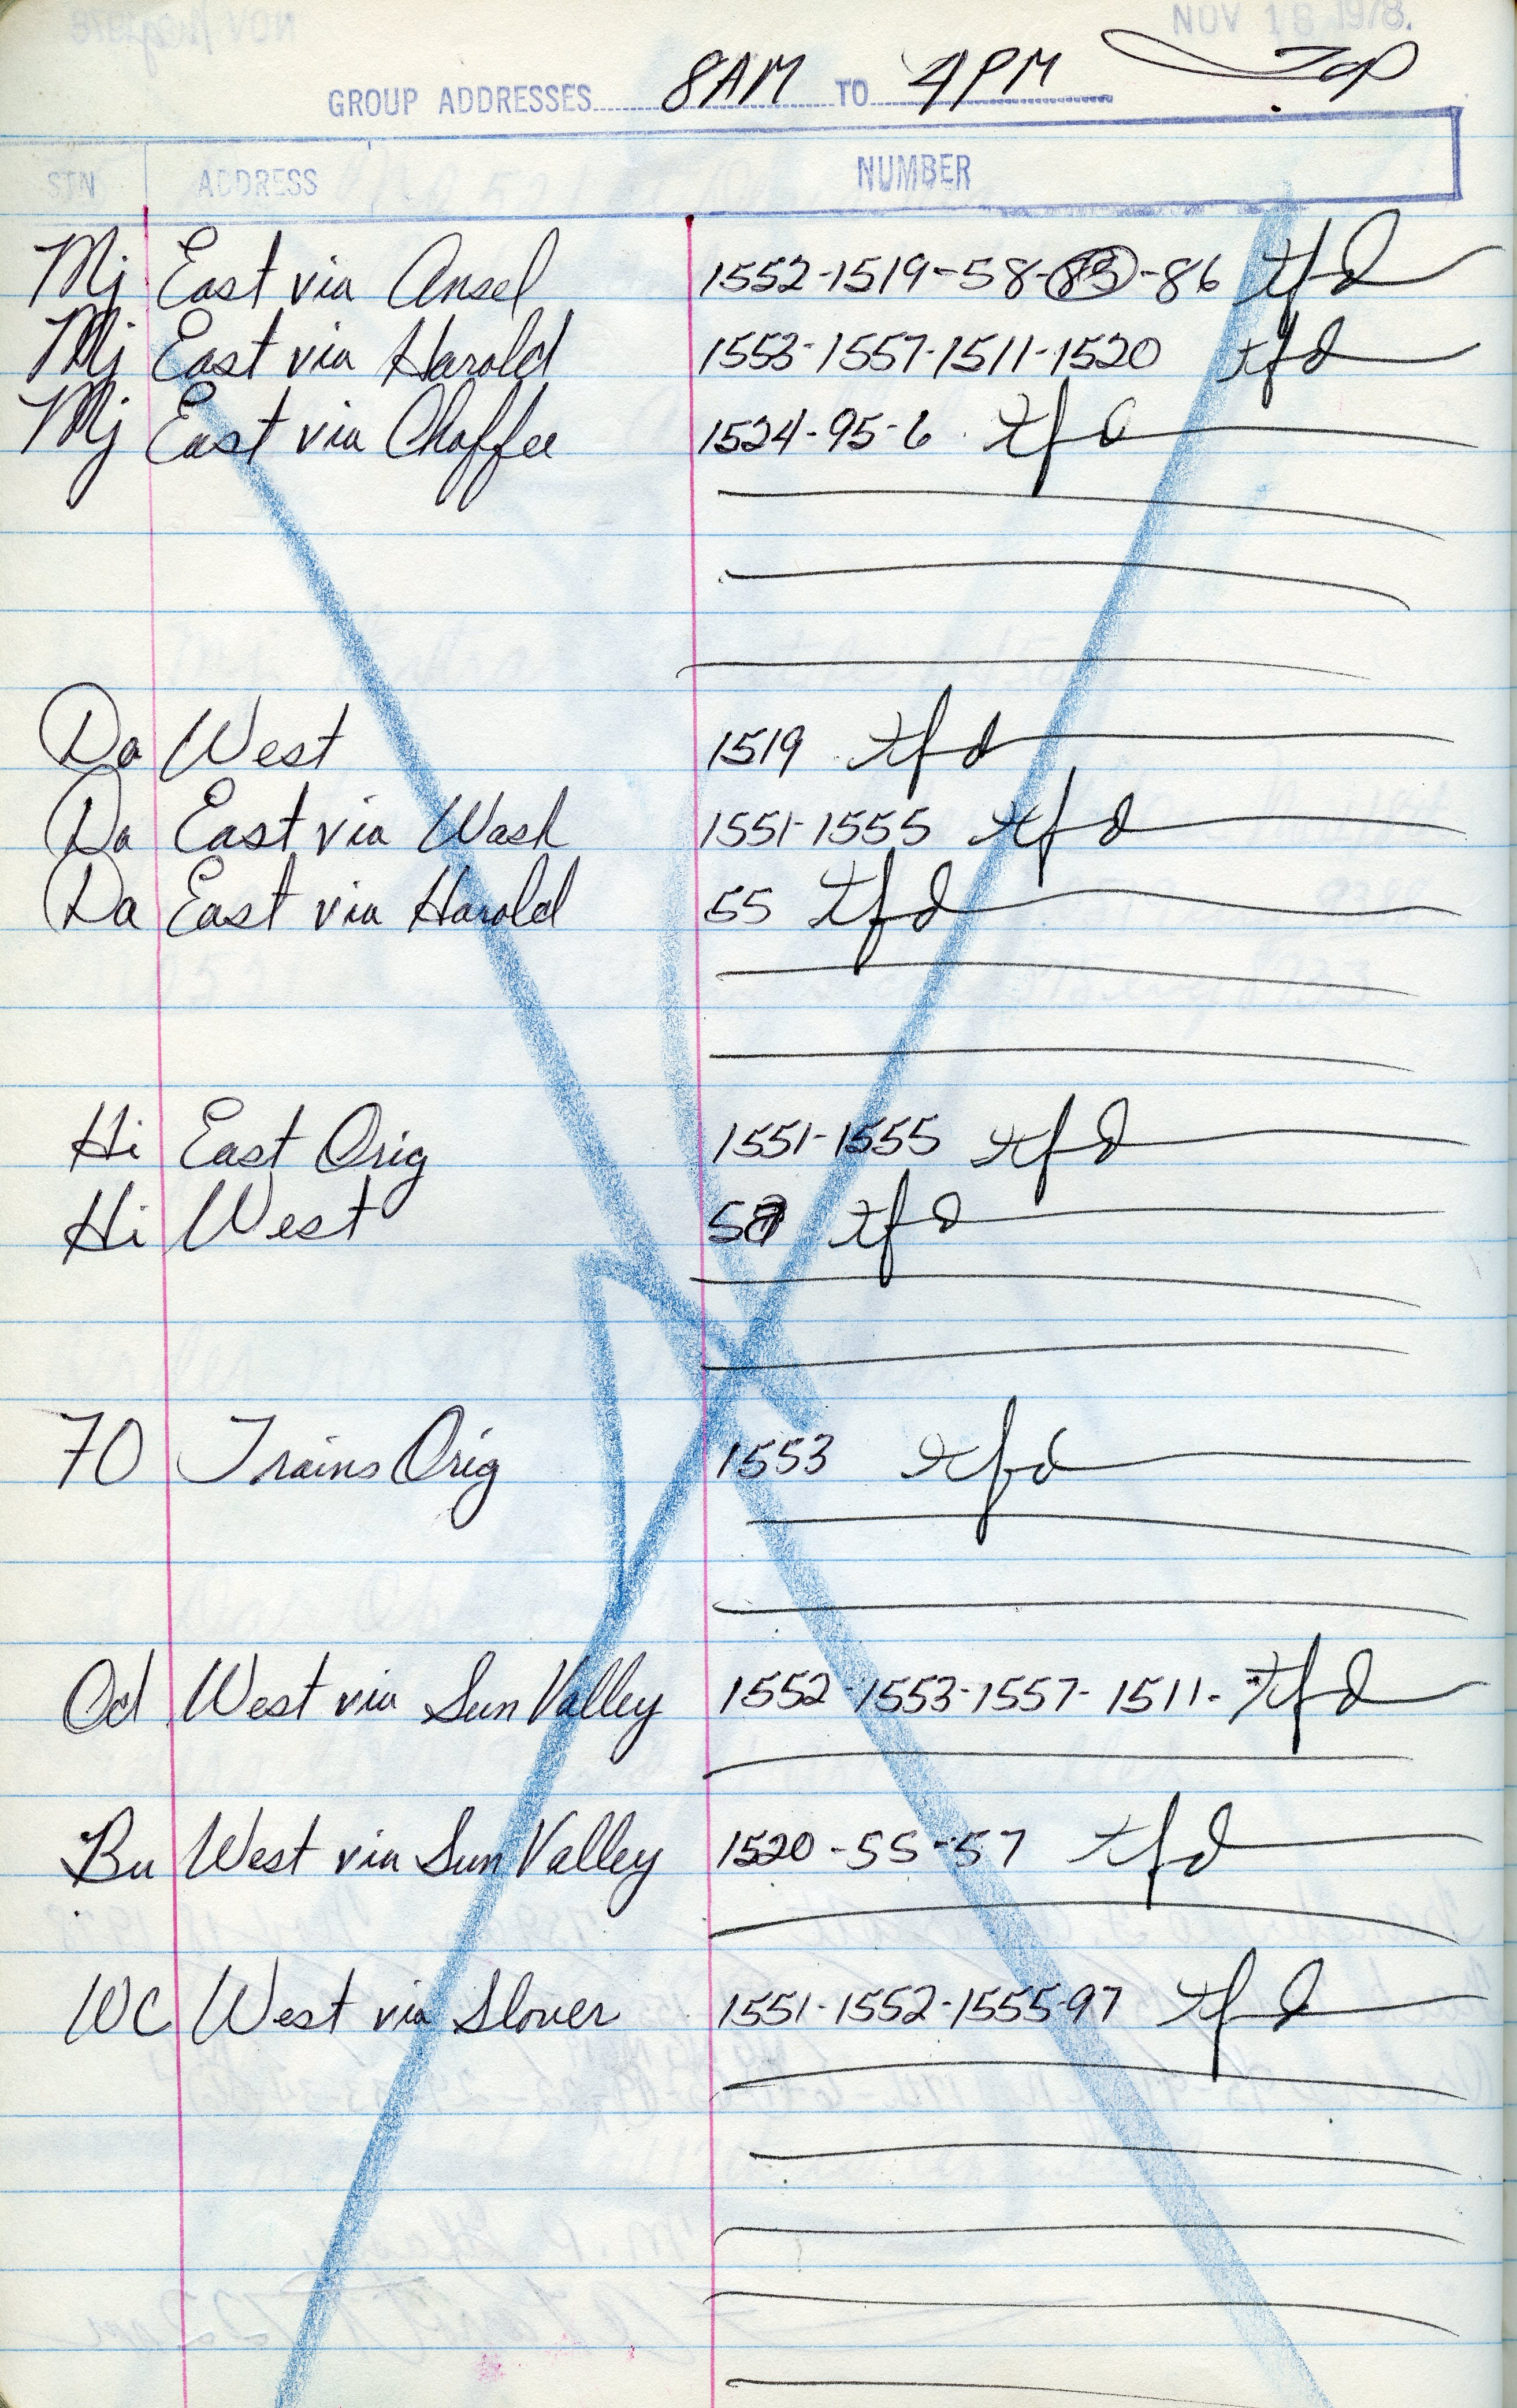 NOV 18 1978.
GROUP ADDRESSES 8AM TO 4PM
STN ADDRESS NUMBER
Mj East via Ansel 1552-1519-58-85-86 tfd
Mj East via Harold 1553-1557-1511-1520 tfd
Mj East via Chaffee 1524-95-6 tfd
Da West 1519 tfd
Da East via Wash 1551-1555 tfd
Da East via Harold 55 tfd
Hi East Orig 1551-1555 tfd
Hi West tfd
70 Trains Orig 1553 tfd
Od West via Sun Valley 1552-1553-1557-1511- tfd
Bu West via Sun Valley 1520-55-57 tfd
WC West via Slover 1551-1552-1555-97 tfd